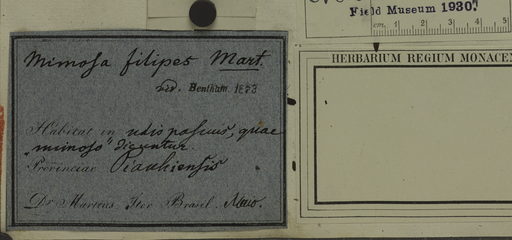 Field Museum 1930.
cm. 1 2 3 4 5
HERBARIUM REGIUM MONACEN
Mimosa filipes Mart.
Bentham. 1873
Habitat in udis pascuis, quae
„mimoso” dicuntur
Provinciae Piauhiensis
Dr. Martius Iter Brasil. Maio.